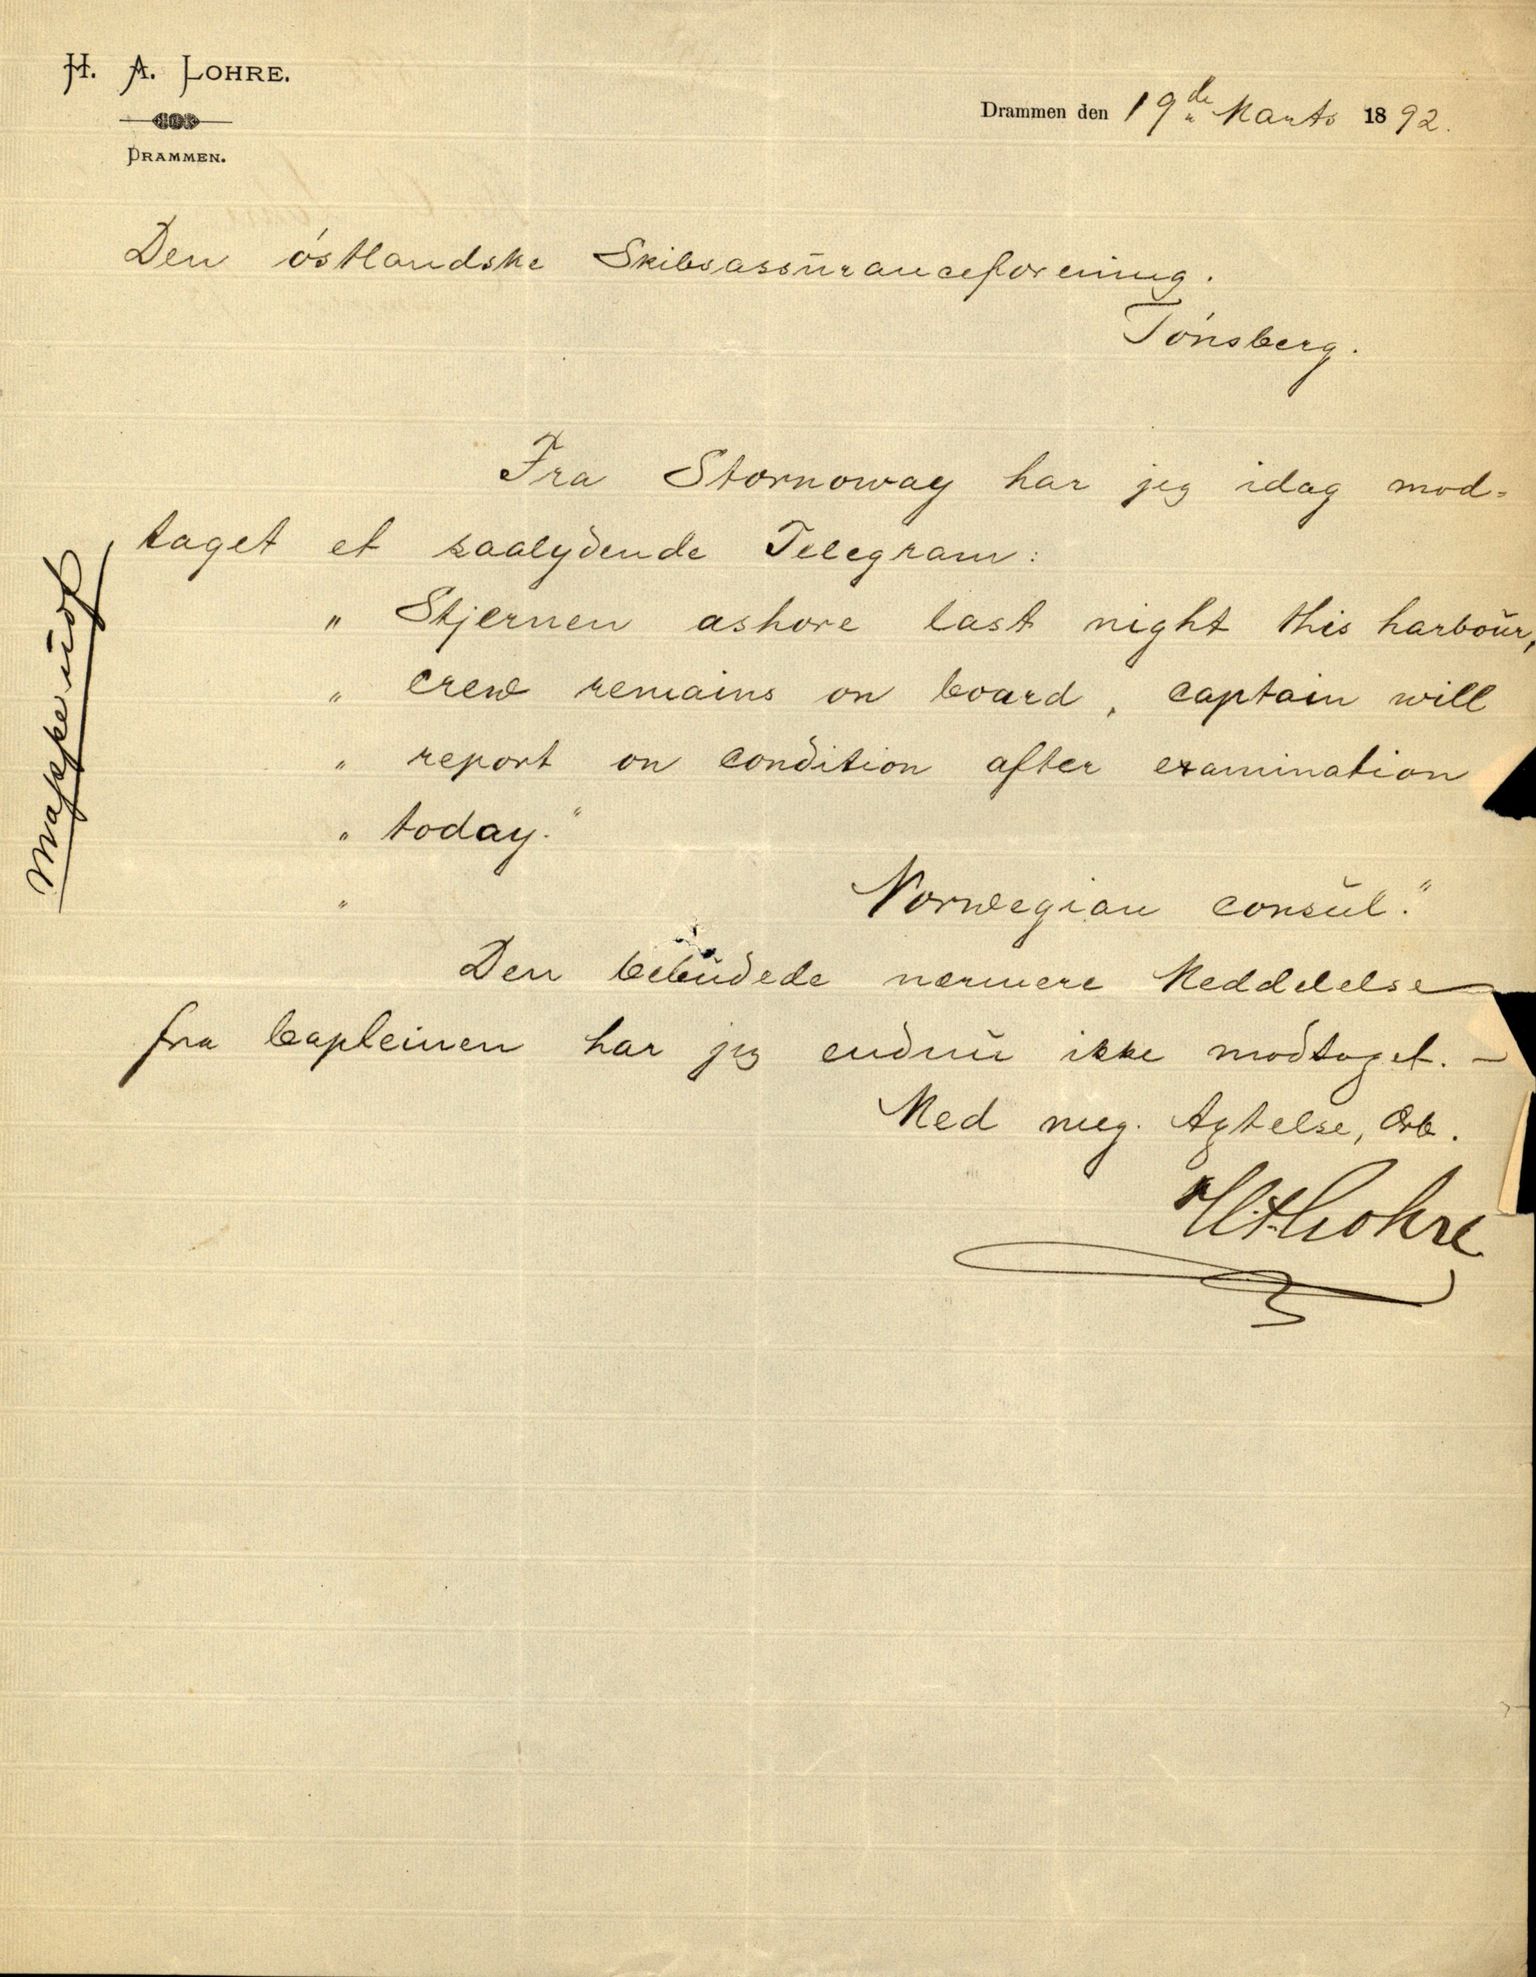 H. A. LOHRE.
DRAMMEN.
Drammen den 19de Marts 1892.
Den östlandske Skibsassŭranceforening.
Tönsberg.
Fra Stornoway har jeg idag mod=
taget et saalydende Telegram:
" Stjernen ashore last night this harboŭr,
" crew remains on board, captain will
" report on condition after examination
" today."
" Norwegian consŭl."
Den bebŭdede nærmere Meddelelse
fra Capteinen har jeg endnŭ ikke modtaget. —
Med meg. Agtelse, Ærb.
H A Lohre